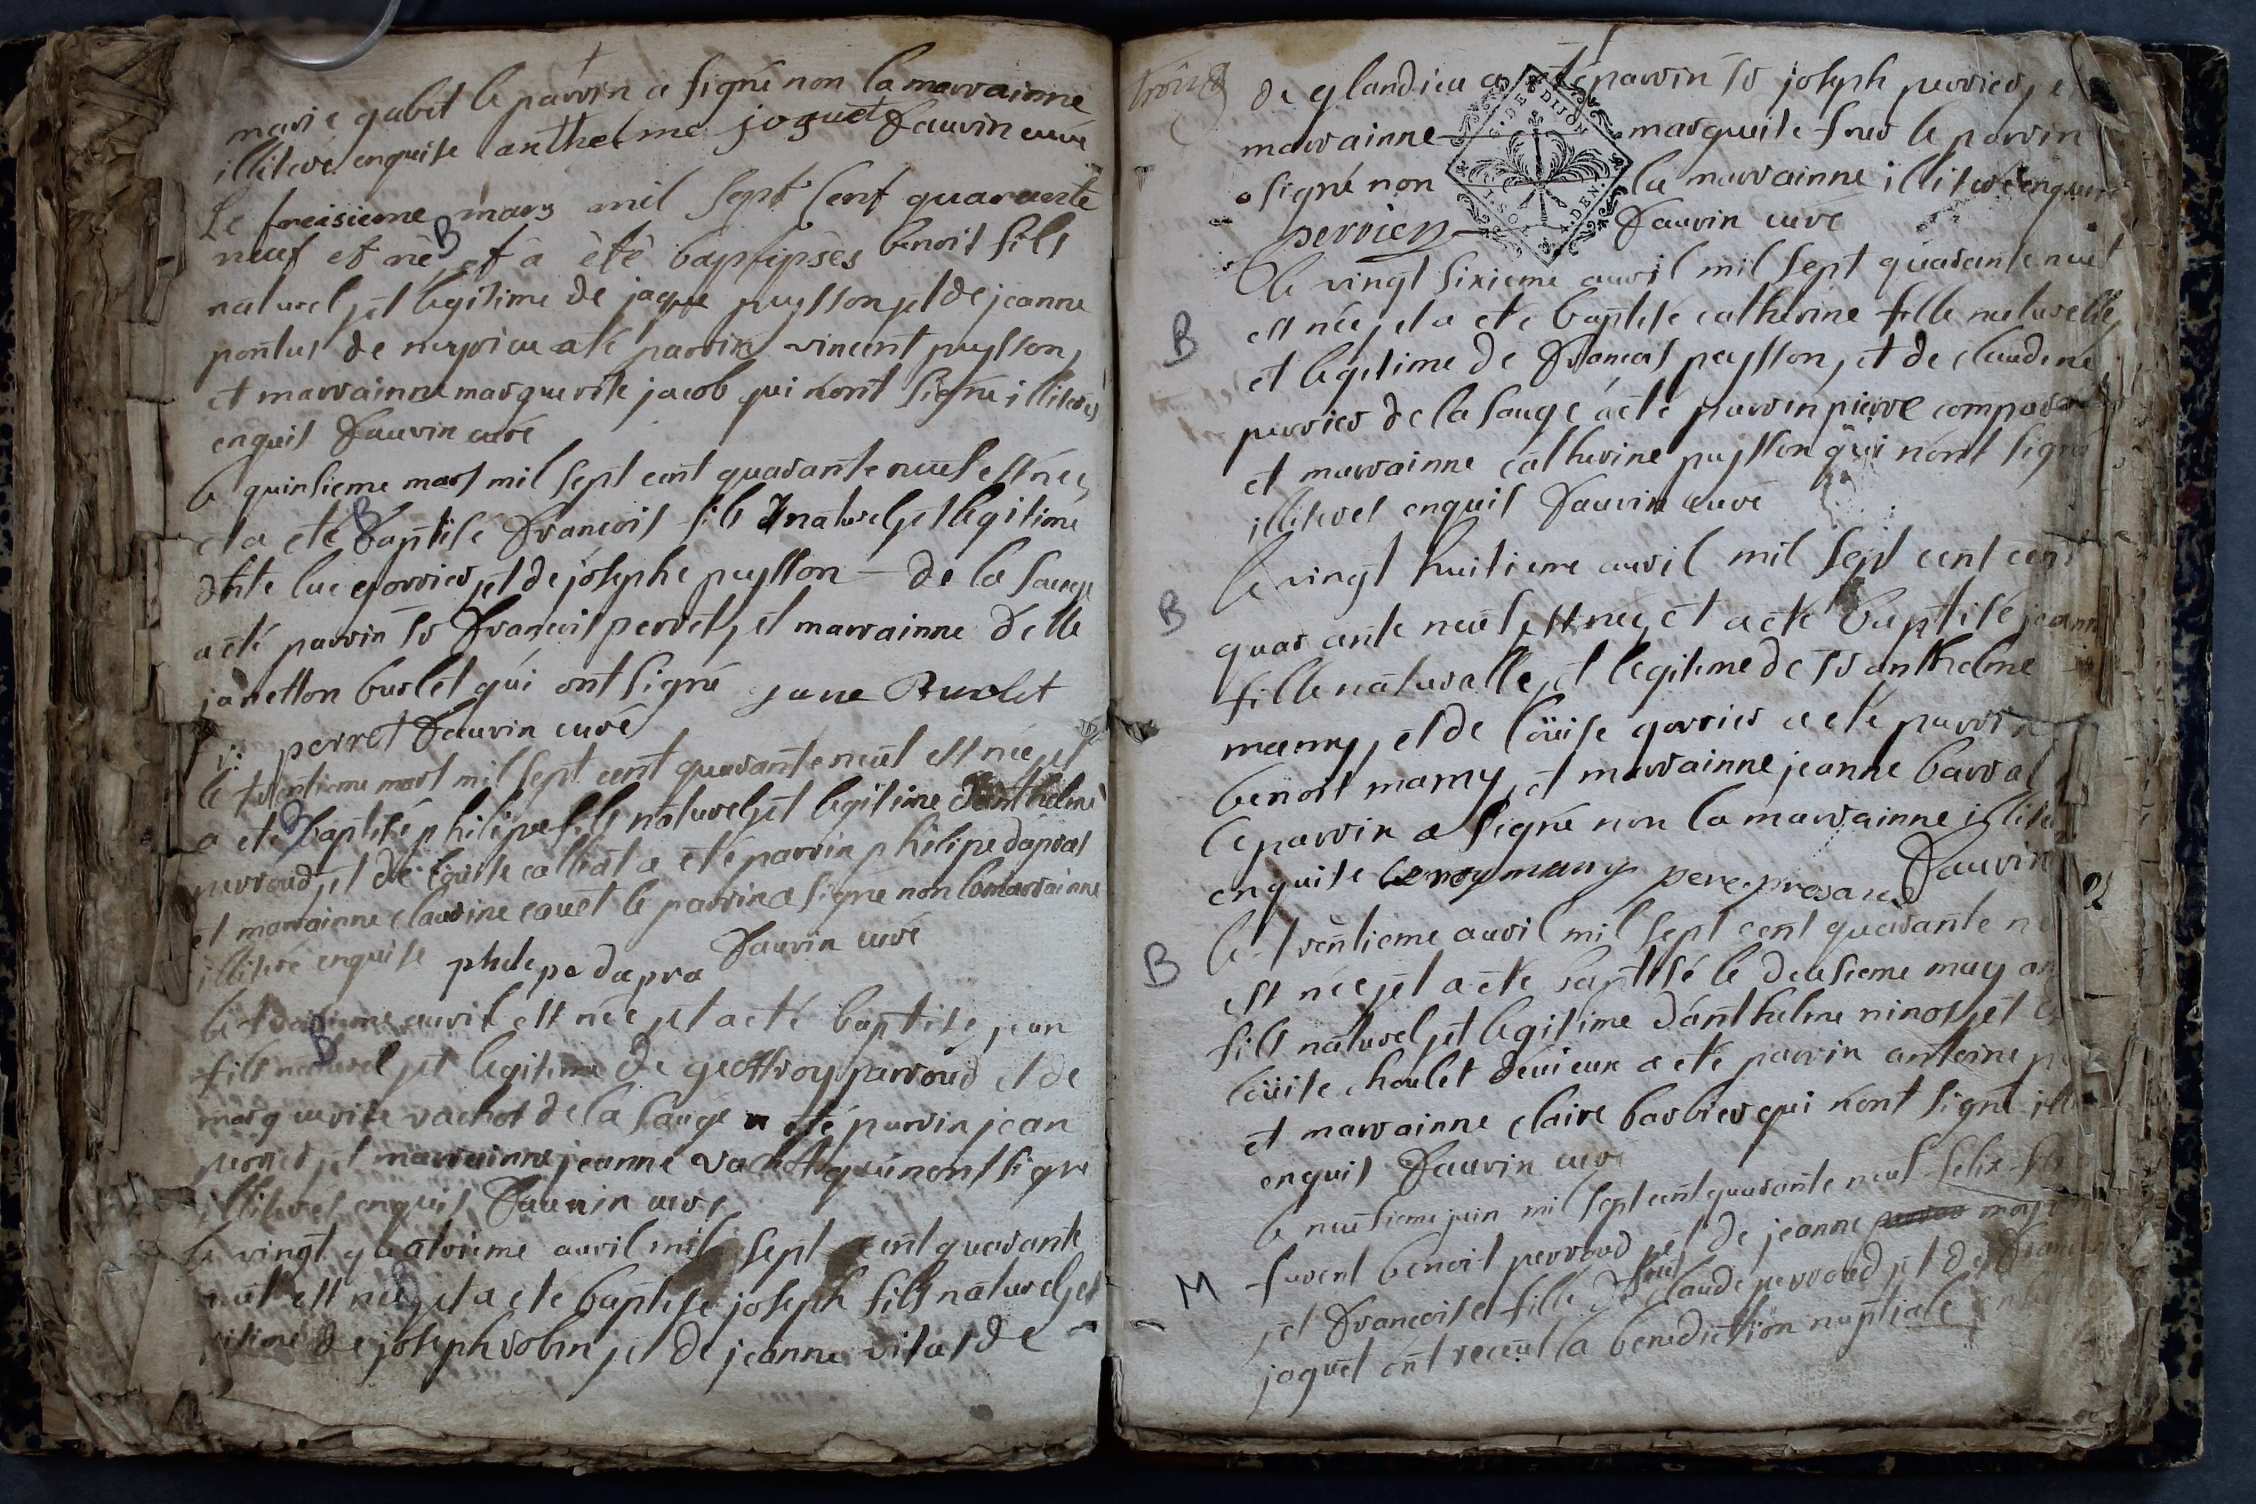 marie gubet le parrin a signé non la marrainne
illiteré enquise anthelme joguet Fauvin curé
Le treisieme mars mil sept sent quarante
neuf et né et à été baptipsés benoit fils
naturel et legitime de jaque puysson et de jeanne
pontus de meyrieu a été parrin vincent puysson,
et marrainne marguerite jacob qui n'ont signé illiterés
enquis Fauvin curé
le quinsieme mars mil sept cent quarante neuf est né,
et a été baptisé François fils naturel et legitime
de luc gorrier, et de josephe puysson de la sauge
a été parrin sr François perret, et marrainne delle
janetton burlet qui ont signé jane Burlet
perret Fauvin curé
le trentieme mars mil sept cent quarante neuf est née et
a été baptisé philipe fils naturel et legitime d'anthelme
perroud, et de louise calliat a été parrin philipe dapras
et marrainne claudine couët le parrin a signé non la marrainne
illiteré enquise philepe dapra Fauvin curé
avril est née, et a été baptisé, jean
fils naturel, et legitime de geoffroy parroud et de
marguerite vachot de la sauge a été parrin jean
perrier, et marrainne jeanne vachot qui n'ont signé
illiteres enquis Fauvin curé
le vingt quatrieme avril mil sept cent quarante
neuf est née, et a été baptisé joseph fils naturel, et
gitime de joseph robin, et de jeanne vitat de
de glandieu a été parrin sr joseph perrier, et
marrainne marguerite frer le parrin
G. DE DIJON
a signé non la marrainne illiteré enquise
perrier Fauvin curé
le vingt sixieme avril mil sept quarante neuf
B est née, et a été baptisé catherine fille naturelle,
et legitime de François puysson, et de claudine
perrier de la sauge a été parrin pierre
et marrainne catherine puysson qui n'ont signé
illiteres enquis Fauvin curé
le vingt huitieme avril mil sept cent cent
B quarante neuf, est née, et a été baptisé jeanne
fille naturalle, et legitime de sr anthelme
mamy, et de louise gorrier a été parrin
benoit mamy, et marrainne jeanne barral
le parrin a signé non la marrainne
enquise mamy pere presant Fauvin
B le trentieme avril mil sept cent quarante
est née, et a été baptisé le deusieme may
fils naturel, et legitime d'anthelme ninot, et
louise choulet a été parrin antoine
et marrainne claire barbier qui n'ont signé
enquis Fauvin curé
le neufieme juin mil sept cent quarante neuf felix fils
M furent benoit perroud, et de jeanne
et Françoise fille de feu claude perroud, et de
joguet ont receut la benediction nuptiale